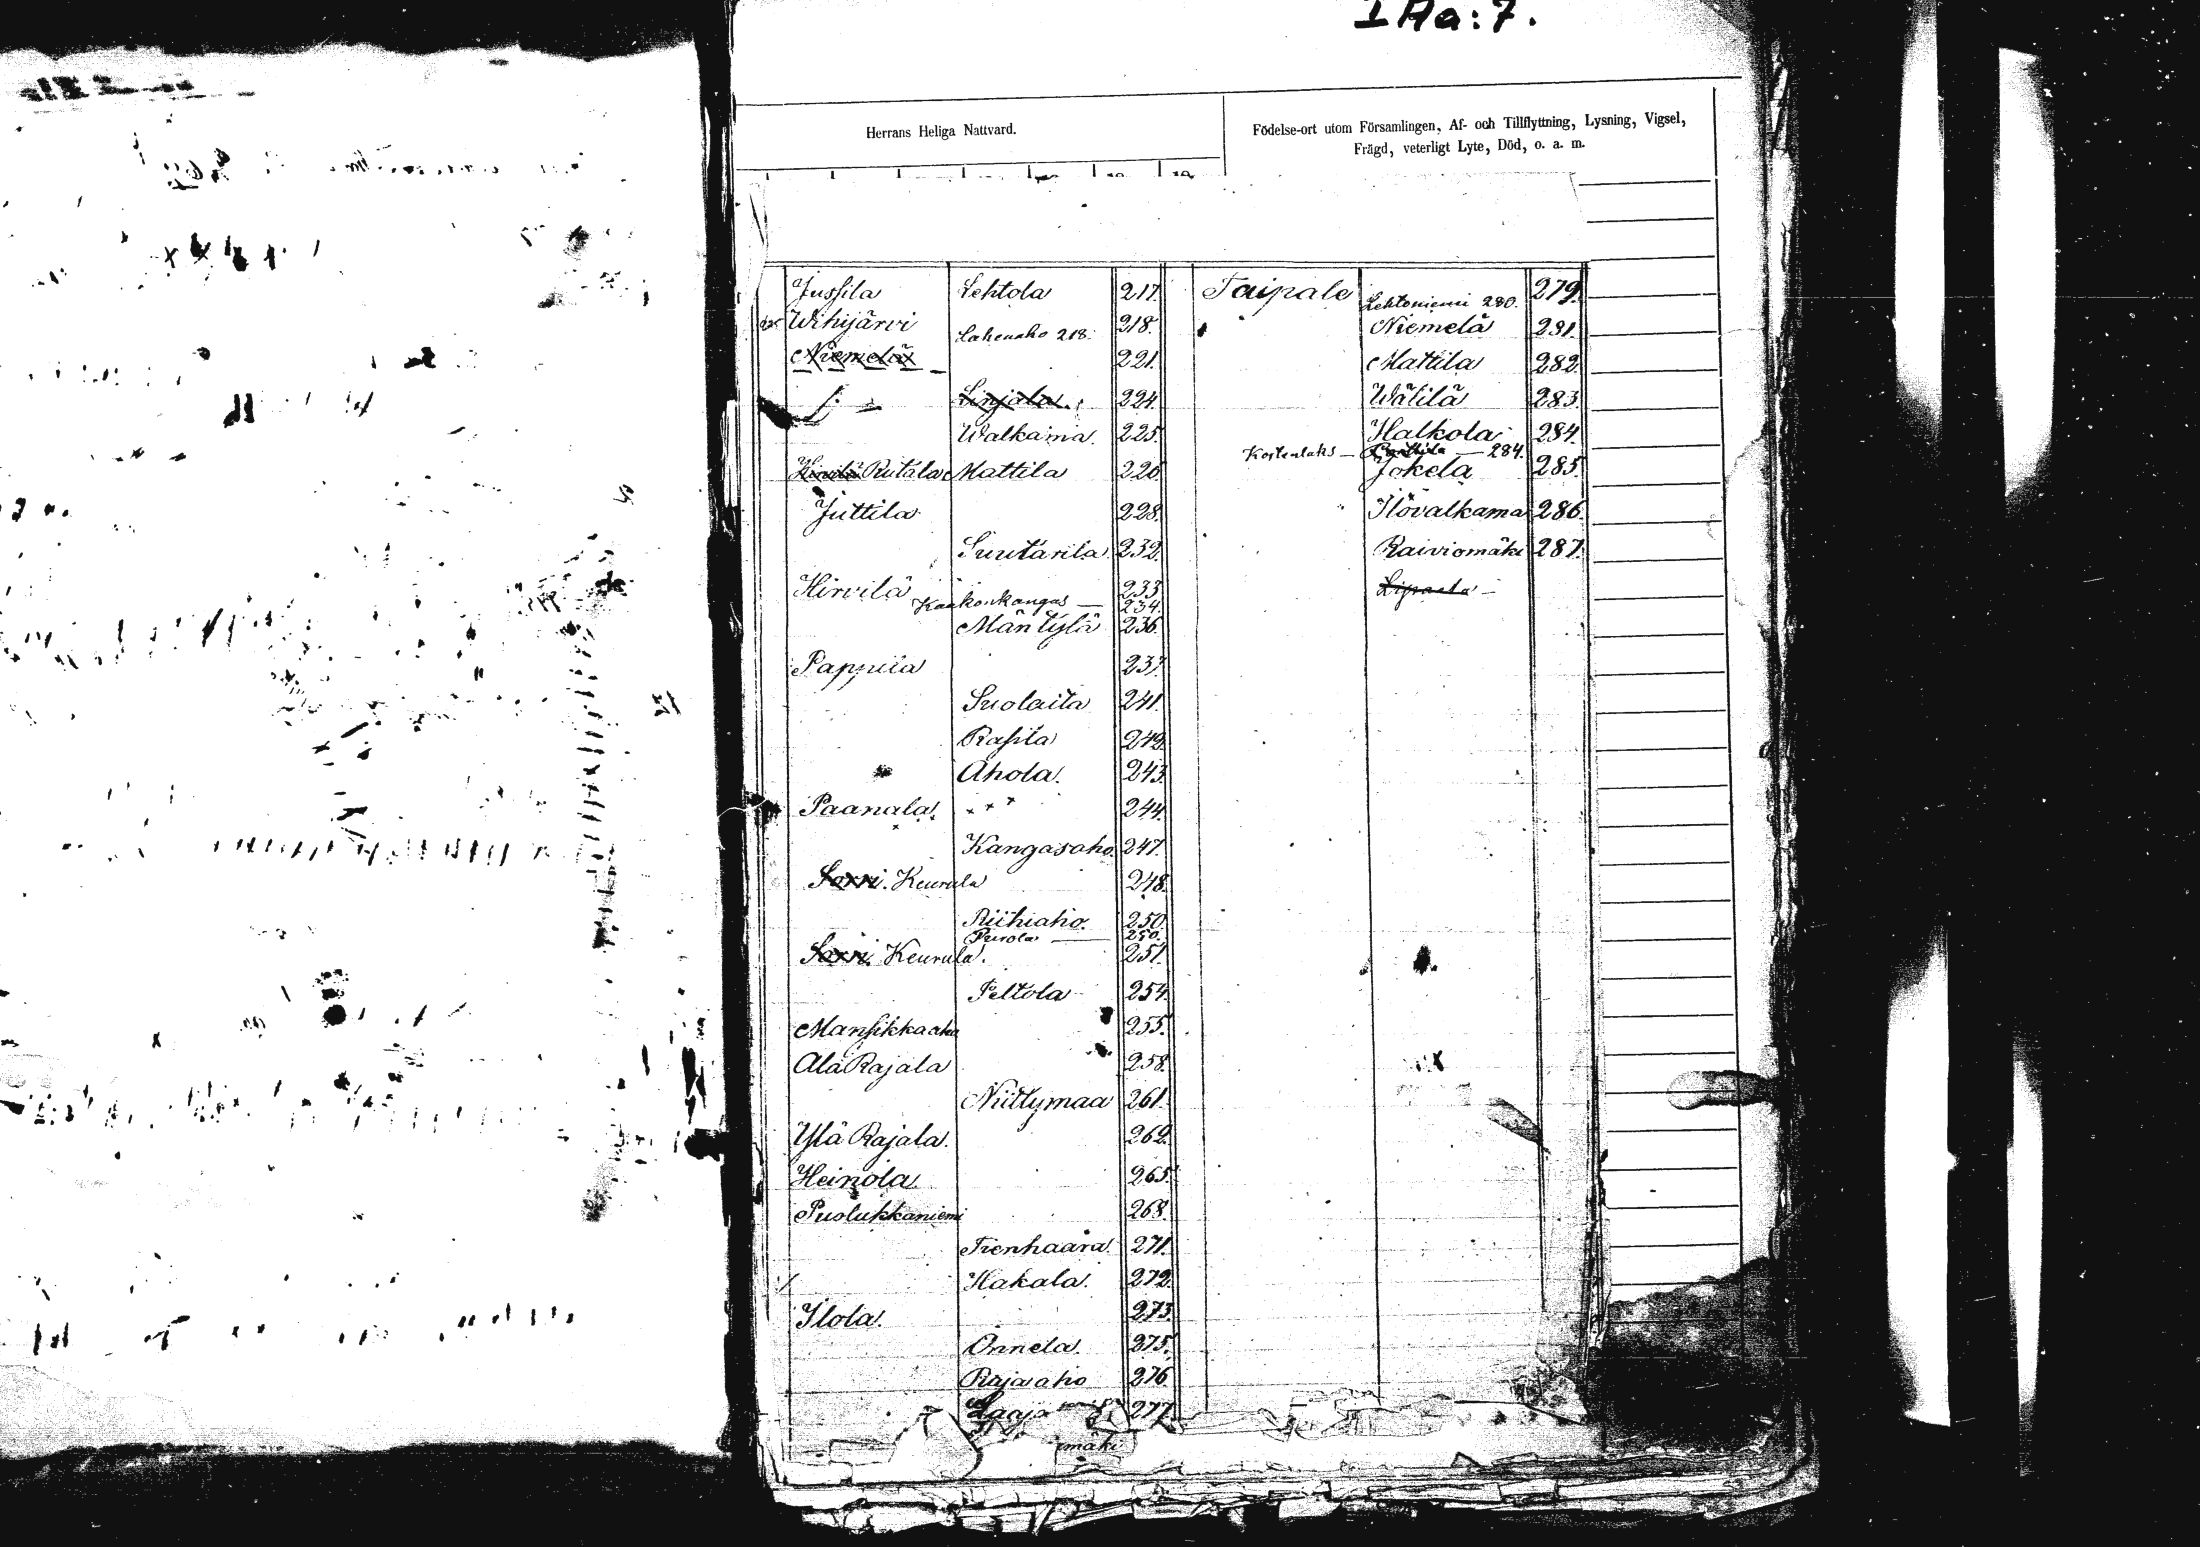 I Aa:7.
Herrans Heliga Nattvard.
Födelse-ort utom Församlingen, Af- och Tillflyttning, Lysning, Vigsel,
Frägd, veterligt Lyte, Död, o. a. m.
Jussila Lehtola 217.
Wihijärvi 218.
Lahenaho 218.
Niemelä 221.
Linjala 224.
Walkama. 225.
Rutala Mattila 226.
Juttila 228.
Suutarila 232.
Hirvilä 233
Kaakonkangas — 234.
Mäntylä 236.
Pappila 237.
Suolaita 241.
Rasila 242.
Ahola. 243.
Paanala. 244.
Kangasaho. 247.
Sarvi. Keurula 248.
Riihiaho. 250.
Purola — 250.
Sarvi. Keurula. 251.
Peltola 254.
Mansikkaaho 255.
Ala Rajala 258.
Niittymaa 261.
Ylä Rajala. 262.
Heinola 265.
Puolukkaniemi 268.
Tienhaara 271.
Hakala. 272.
Ilola. 273.
Onnela. 275.
Rajaaho 276
277.
mäki
Taipale 279.
Lehtoniemi 280.
Niemelä 281.
Mattila 282.
Wälilä 283.
Halkola 284.
— 284.
Jokela 285.
Ilövalkama 286.
Raiviomäki 287.